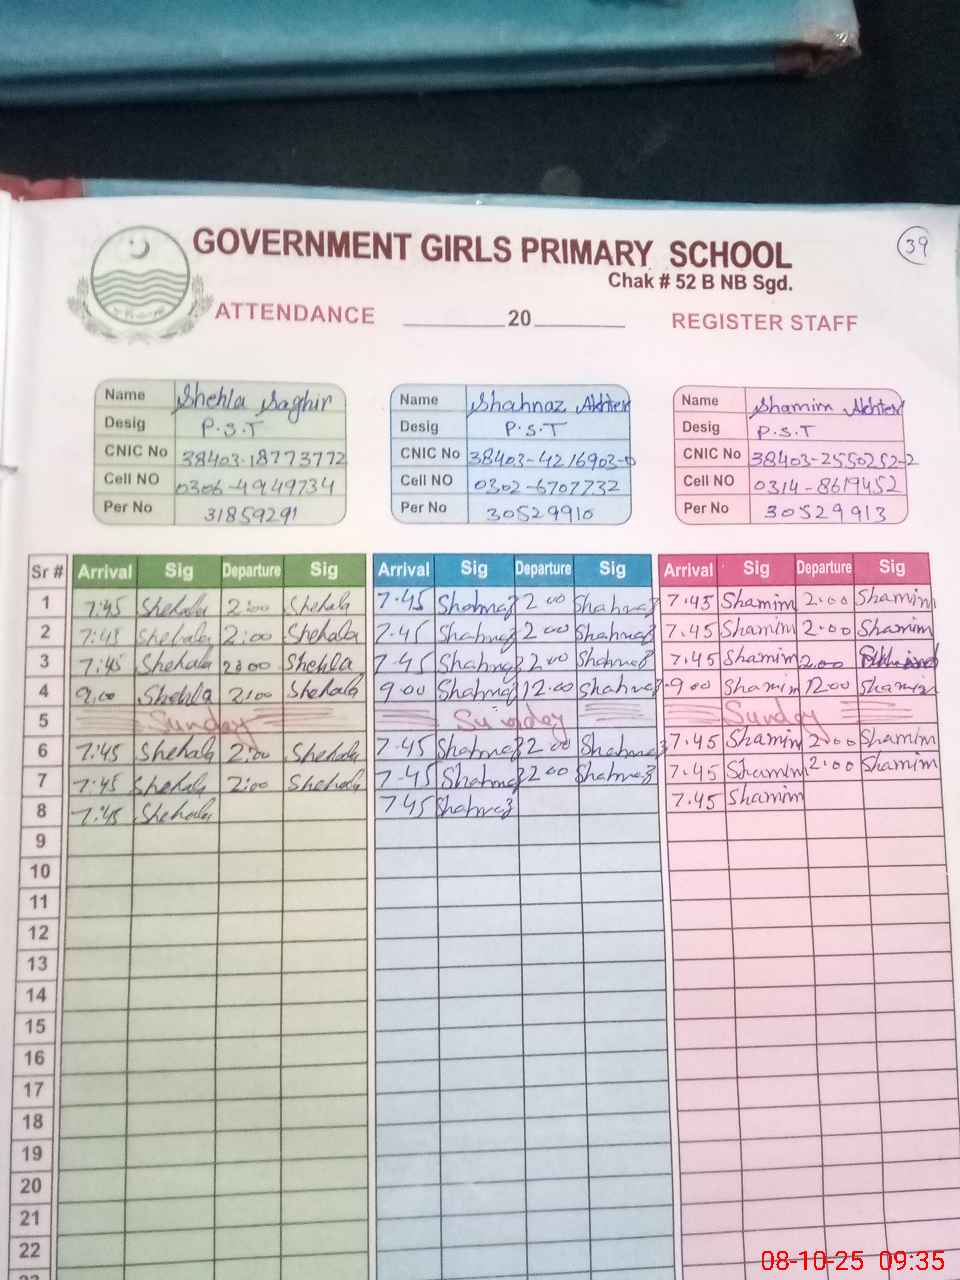 GOVERNMENT GIRLS PRIMARY SCHOOL
39
Chak # 52 B NB Sgd.
ATTENDANCE ________20________ REGISTER STAFF
Name Shehla Saghir Name Shahnaz Akhter Name Shamim Akhter
Desig P.S.T Desig P.S.T Desig P.S.T
CNIC No 38403-18773772 CNIC No 38403-4216903-0 CNIC No 38403-2550252-2
Cell NO 0306-4949734 Cell NO 0302-6707732 Cell NO 0314-8619452
Per No 31859291 Per No 30529910 Per No 30529913
Sr # Arrival Sig Departure Sig Arrival Sig Departure Sig Arrival Sig Departure Sig
1 7:45 Shehala 2:00 Shehala 7.45 Shahnaz 2 00 Shahnaz 7.45 Shamim 2.00 Shamim
2 7:45 Shehala 2:00 Shehala 7.45 Shahnaz 2 00 Shahnaz 7.45 Shamim 2.00 Shamim
3 7:45 Shehala 2:00 Shehla 7.45 Shahnaz 2.00 Shahnaz 7.45 Shamim 2.00
4 9:00 Shehla 2:00 Shehala 9.00 Shahnaz 12.00 Shahnaz 9.00 Shamim 12.00 Shamim
5 Sunday Sunday Sunday
6 7:45 Shehala 2:00 Shehala 7.45 Shahnaz 2 00 Shahnaz 7.45 Shamim 2.00 Shamim
7 7:45 Shehala 2:00 Shehala 7.45 Shahnaz 2.00 Shahnaz 7.45 Shamim 2.00 Shamim
8 7:45 Shehala 7.45 Shahnaz 7.45 Shamim
9
10
11
12
13
14
15
16
17
18
19
20
21
22
08-10-25 09:35